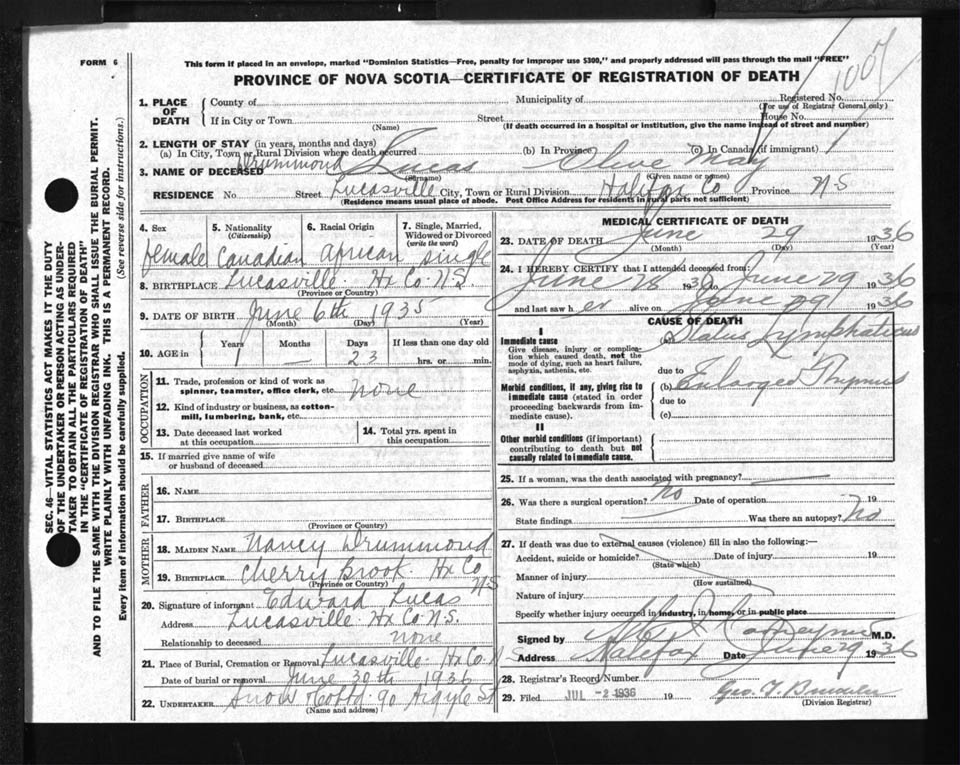 FORM 6
This form if placed in an envelope, marked "Dominion Statistics—Free, penalty for improper use $300," and properly addressed will pass through the mail "FREE"
PROVINCE OF NOVA SCOTIA—CERTIFICATE OF REGISTRATION OF DEATH
1007
SEC. 46—VITAL STATISTICS ACT MAKES IT THE DUTY
OF THE UNDERTAKER OR PERSON ACTING AS UNDER-
TAKER TO OBTAIN ALL THE PARTICULARS REQUIRED
IN THE "CERTIFICATE OF REGISTRATION OF DEATH"
AND TO FILE THE SAME WITH THE DIVISION REGISTRAR WHO SHALL ISSUE THE BURIAL PERMIT.
WRITE PLAINLY WITH UNFADING INK. THIS IS A PERMANENT RECORD.
Every item of information should be carefully supplied. (See reverse side for instructions.)
1. PLACE OF DEATH County of Municipality of Registered No.
(For use of Registrar General only)
If in City or Town Street House No.
(Name) (If death occurred in a hospital or institution, give the name instead of street and number)
2. LENGTH OF STAY (in years, months and days)
(a) In City, Town or Rural Division where death occurred (b) In Province (c) In Canada (if immigrant)
3. NAME OF DECEASED Drummond Lucas Olive May
(Surname) (Given name or names)
RESIDENCE No Street Lucasville City, Town or Rural Division Halifax Co Province N S
(Residence means usual place of abode. Post Office Address for residents in rural parts not sufficient)
4. Sex 5. Nationality (Citizenship) 6. Racial Origin 7. Single, Married, Widowed or Divorced (write the word)
female Canadian African single
8. BIRTHPLACE Lucasville Hx Co. N.S.
(Province or Country)
9. DATE OF BIRTH June 6th 1935
(Month) (Day) (Year)
10. AGE in Years Months Days If less than one day old
1 — 23 hrs. or min.
OCCUPATION
11. Trade, profession or kind of work as spinner, teamster, office clerk, etc. None
12. Kind of industry or business, as cotton-mill, lumbering, bank, etc.
13. Date deceased last worked at this occupation
14. Total yrs. spent in this occupation
15. If married give name of wife or husband of deceased
FATHER
16. NAME
17. BIRTHPLACE
(Province or Country)
MOTHER
18. MAIDEN NAME Nancy Drummond
19. BIRTHPLACE Cherry Brook Hx Co NS
(Province or Country)
20. Signature of informant Edward Lucas
Address Lucasville Hx Co. N.S.
Relationship to deceased none
21. Place of Burial, Cremation or Removal Lucasville Hx Co. N S
Date of burial or removal June 30th 1936
22. UNDERTAKER Snow & Co Ltd. 90 Argyle St
(Name and address)
MEDICAL CERTIFICATE OF DEATH
23. DATE OF DEATH June 29 1936
(Month) (Day) (Year)
24. I HEREBY CERTIFY that I attended deceased from:
June 28 1936 to June 29 1936
and last saw her alive on June 29 1936
CAUSE OF DEATH
I
Immediate cause
Give disease, injury or complication which caused death, not the mode of dying, such as heart failure, asphyxia, asthenia, etc.
(a) Status Lymphaticus
due to
Morbid conditions, if any, giving rise to immediate cause (stated in order proceeding backwards from immediate cause).
(b) Enlarged Thymus
due to
(c)
II
Other morbid conditions (if important) contributing to death but not causally related to immediate cause.
25. If a woman, was the death associated with pregnancy? —
26. Was there a surgical operation? No Date of operation 19
State findings Was there an autopsy? No
27. If death was due to external causes (violence) fill in also the following:—
Accident, suicide or homicide? Date of injury 19
(State which)
Manner of injury
(How sustained)
Nature of injury
Specify whether injury occurred in industry, in home, or in public place
Signed by M.D.
Address Halifax Date June 29 1936
28. Registrar's Record Number
29. Filed JUL - 2 1936 19
(Division Registrar)